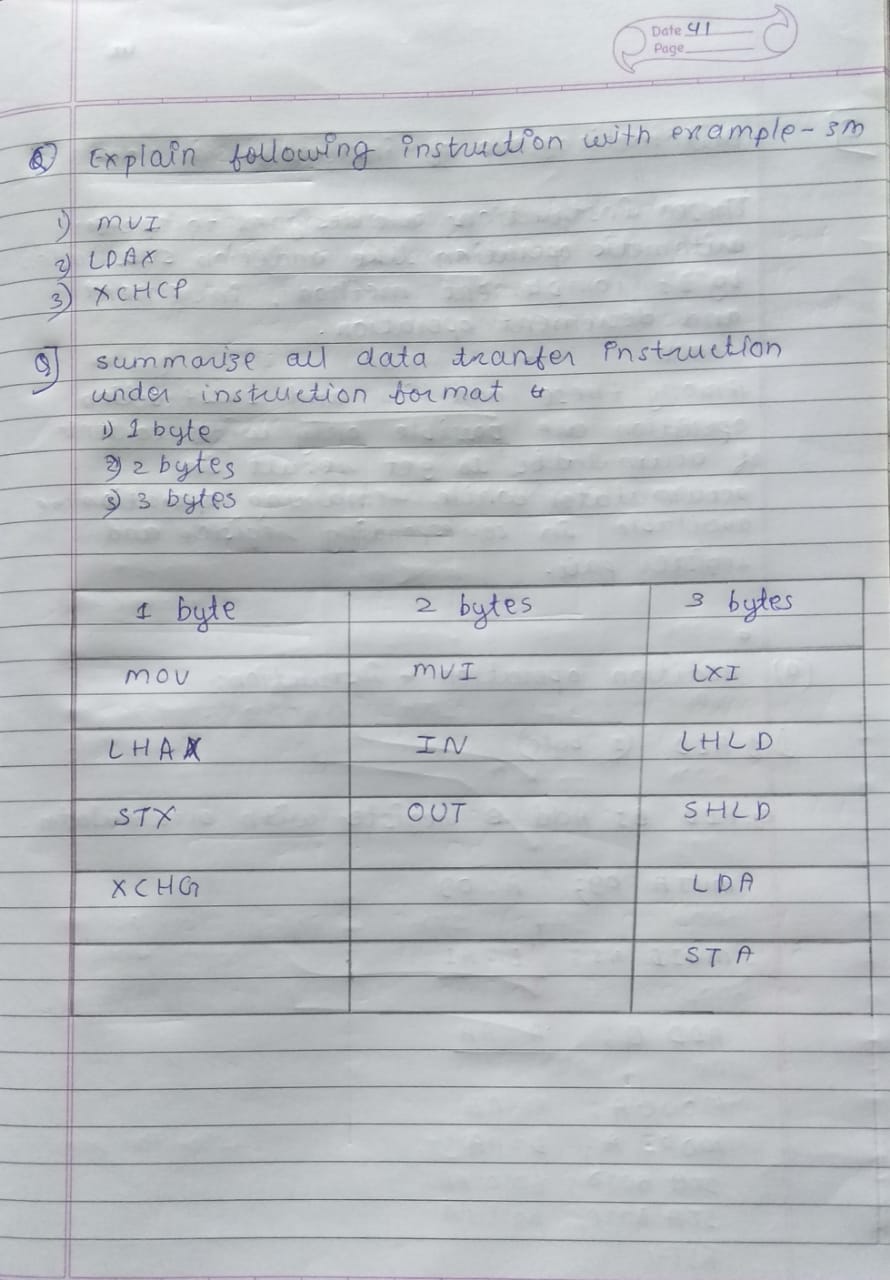 Date 41
Page
Q) Explain following instruction with example - 3m
1) MVI
2) LDAX
3) XCHCP
Q] summarize all data tranfer instruction
under instruction format
1) 1 byte
2) 2 bytes
3) 3 bytes
1 byte 2 bytes 3 bytes
MOV MVI LXI
LHAX IN LHLD
STX OUT SHLD
XCHG LDA
STA